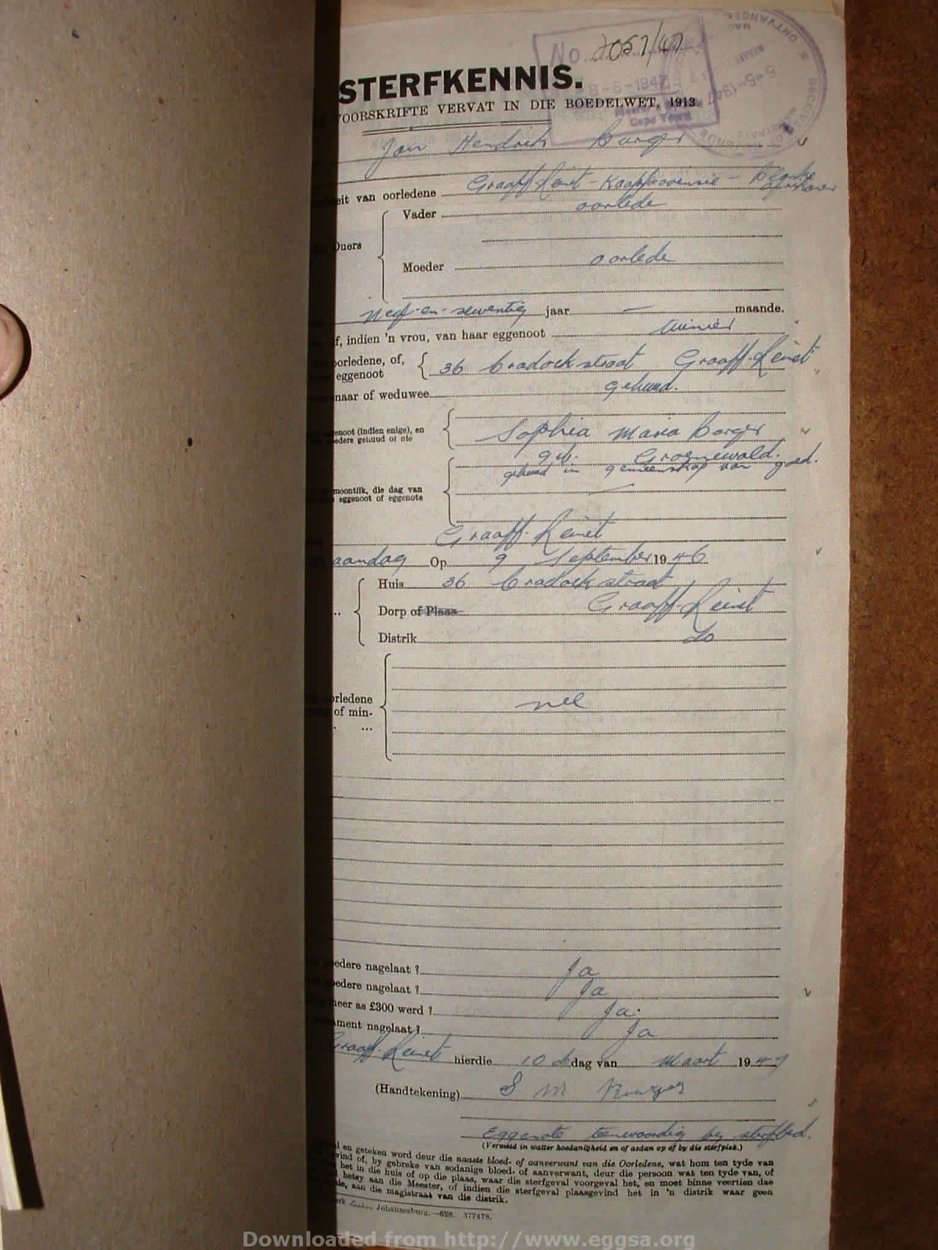 No. 2057/47
STERFKENNIS.
VOORSKRIFTE VERVAT IN DIE BOEDELWET, 1913.
Jan Hendrik Burger
eit van oorledene Graaff-Reinet - Kaapprovinsie - Blanke Afrikaner
Vader oorlede
Ouers
Moeder oorlede
Neg-en-sewentig jaar — maande.
f, indien 'n vrou, van haar eggenoot
oorledene, of, eggenoot 36 Cradock-straat Graaff-Reinet
naar of weduwee getroud.
enoot (indien enige), en
edere getuud of nie
Sophia Maria Burger
geb. Groenewald.
getroud in gemeenskap van goed.
moontlik, die dag van
eggenoot of eggenote —
Graaff-Reinet
aandag Op 9 September 1946
Huis 36 Cradock straat
Dorp of Plaas Graaff-Reinet
Distrik do
orledene
of min-
nil
edere nagelaat ? Ja
edere nagelaat ? Ja
eer as £300 werd ? Ja.
ment nagelaat ? Ja
Graaff-Reinet hierdie 10 de dag van Maart 1947
(Handtekening) S M Burger
Eggenote teenwoordig by sterfbed.
(Vermeld in watter hoedanigheid en of aldan op of by die sterfplek.)
l en geteken word deur die naaste bloed- of aanverwant van die Oorledene, wat hom ten tyde van
vind of, by gebreke van sodanige bloed- of aanverwant, deur die persoon wat ten tyde van, of
het in die huis of op die plaas, waar die sterfgeval voorgeval het, en moet binne veertien dae
hetsy aan die Meester, of indien die sterfgeval plaasgevind het in 'n distrik waar geen
is, aan die magistraat van die distrik.
Johannesburg.—628. 377478.
Downloaded from http://www.eggsa.org